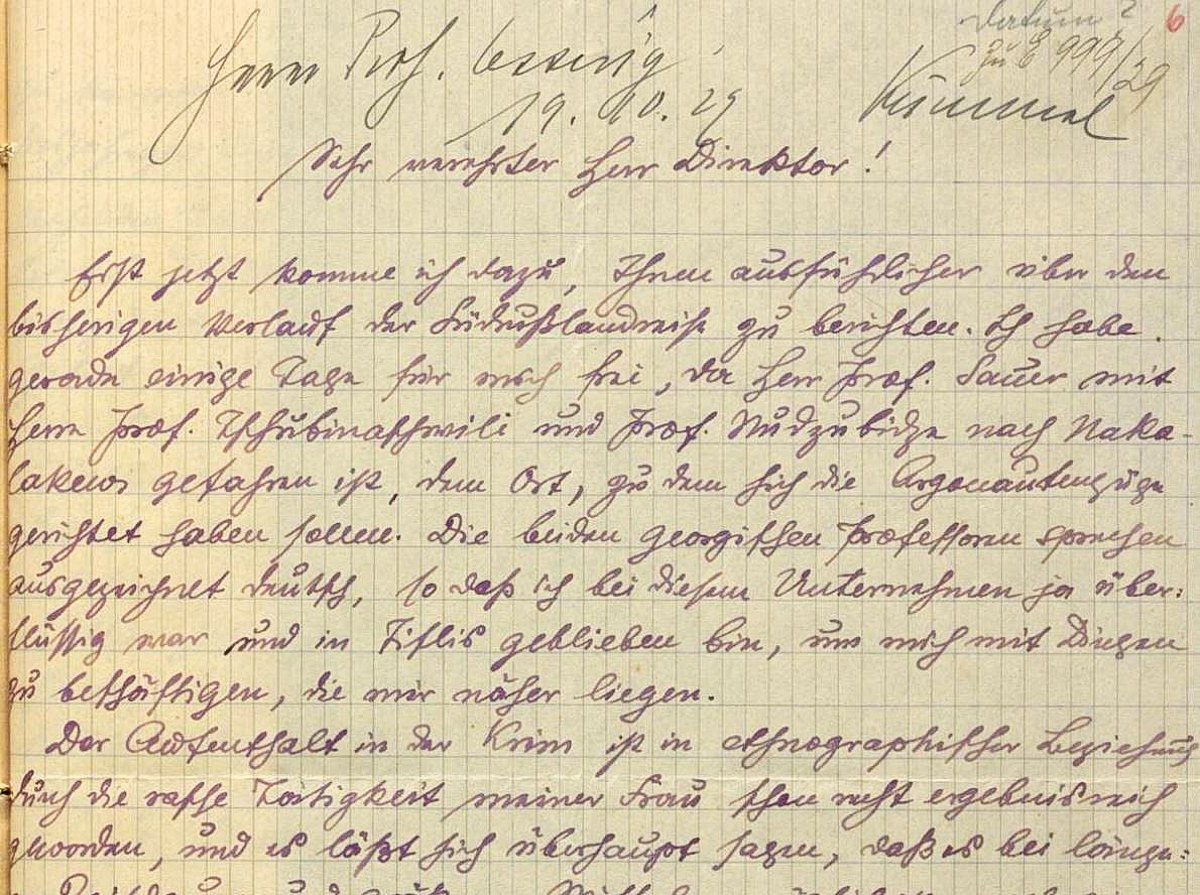 Datum? 6
zu E 999/29
Herrn Prof. Lessing
19. 10. 29 Kümmel
Sehr verehrter Herr Direktor!
Erst jetzt komme ich dazu, Ihnen ausführlicher über den
bisherigen Verlauf der Südrußlandreise zu berichten. Ich habe
gerade einige Tage für mich frei, da Herr Prof. Sauer mit
Herrn Prof. Tschubinaschwili und Prof. Nudzubidze nach Naka-
lakewi gefahren ist, dem Ort, zu dem sich die Argonautenzüge
gerichtet haben sollen. Die beiden georgischen Professoren sprechen
ausgezeichnet deutsch, so daß ich bei diesem Unternehmen ja über:
flüssig war und in Tiflis geblieben bin, um mich mit Dingen
zu beschäftigen, die mir näher liegen.
Der Aufenthalt in der Krim ist in ethnographischer Beziehung
durch die rasche Tätigkeit meiner Frau schon recht ergebnisreich
geworden, und es läßt sich überhaupt sagen, daß es bei länge: